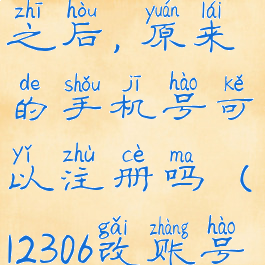 zhī hòu yuán lái
之后，原来
de shǒu jī hào kě
的手机号可
yǐ zhù cè ma
以注册吗（
gǎi zhàng hào
12306改账号